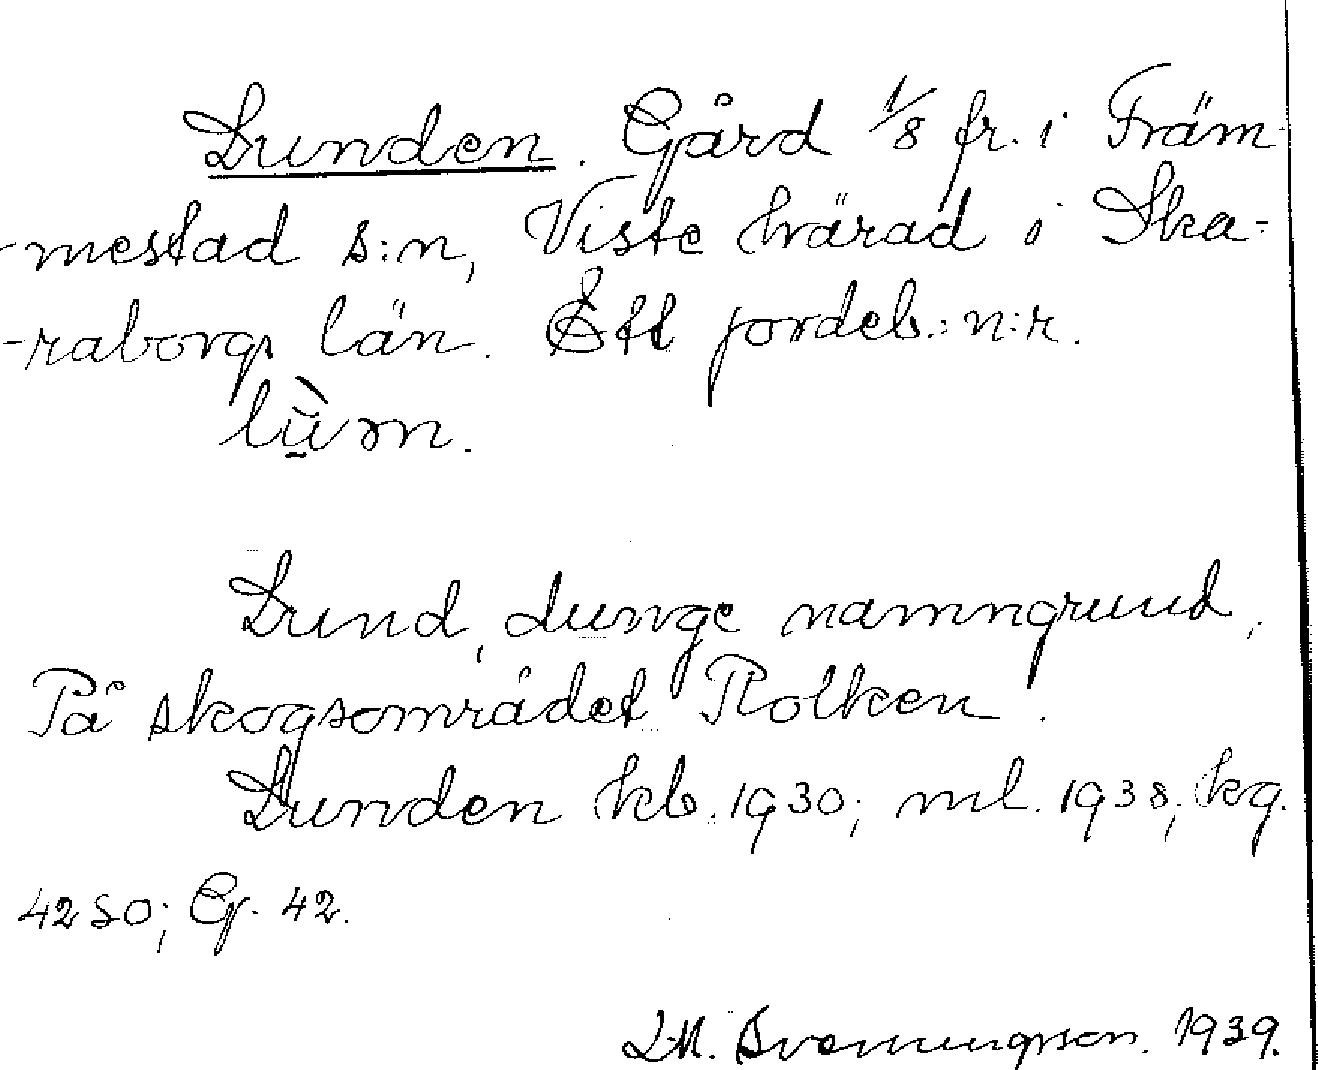 Lunden. Gård 1/8 fr. i Främ-
-mestad s:n, Viste härad i Ska-
-raborgs län. Ett jordeb.: n:r.
Lund, dunge namngrund.
På skogsområdet Rolken.
Lunden kb. 1930; ml. 1938; kg.
4250; Cg. 42.
L.M. Svenungsson. 1939.